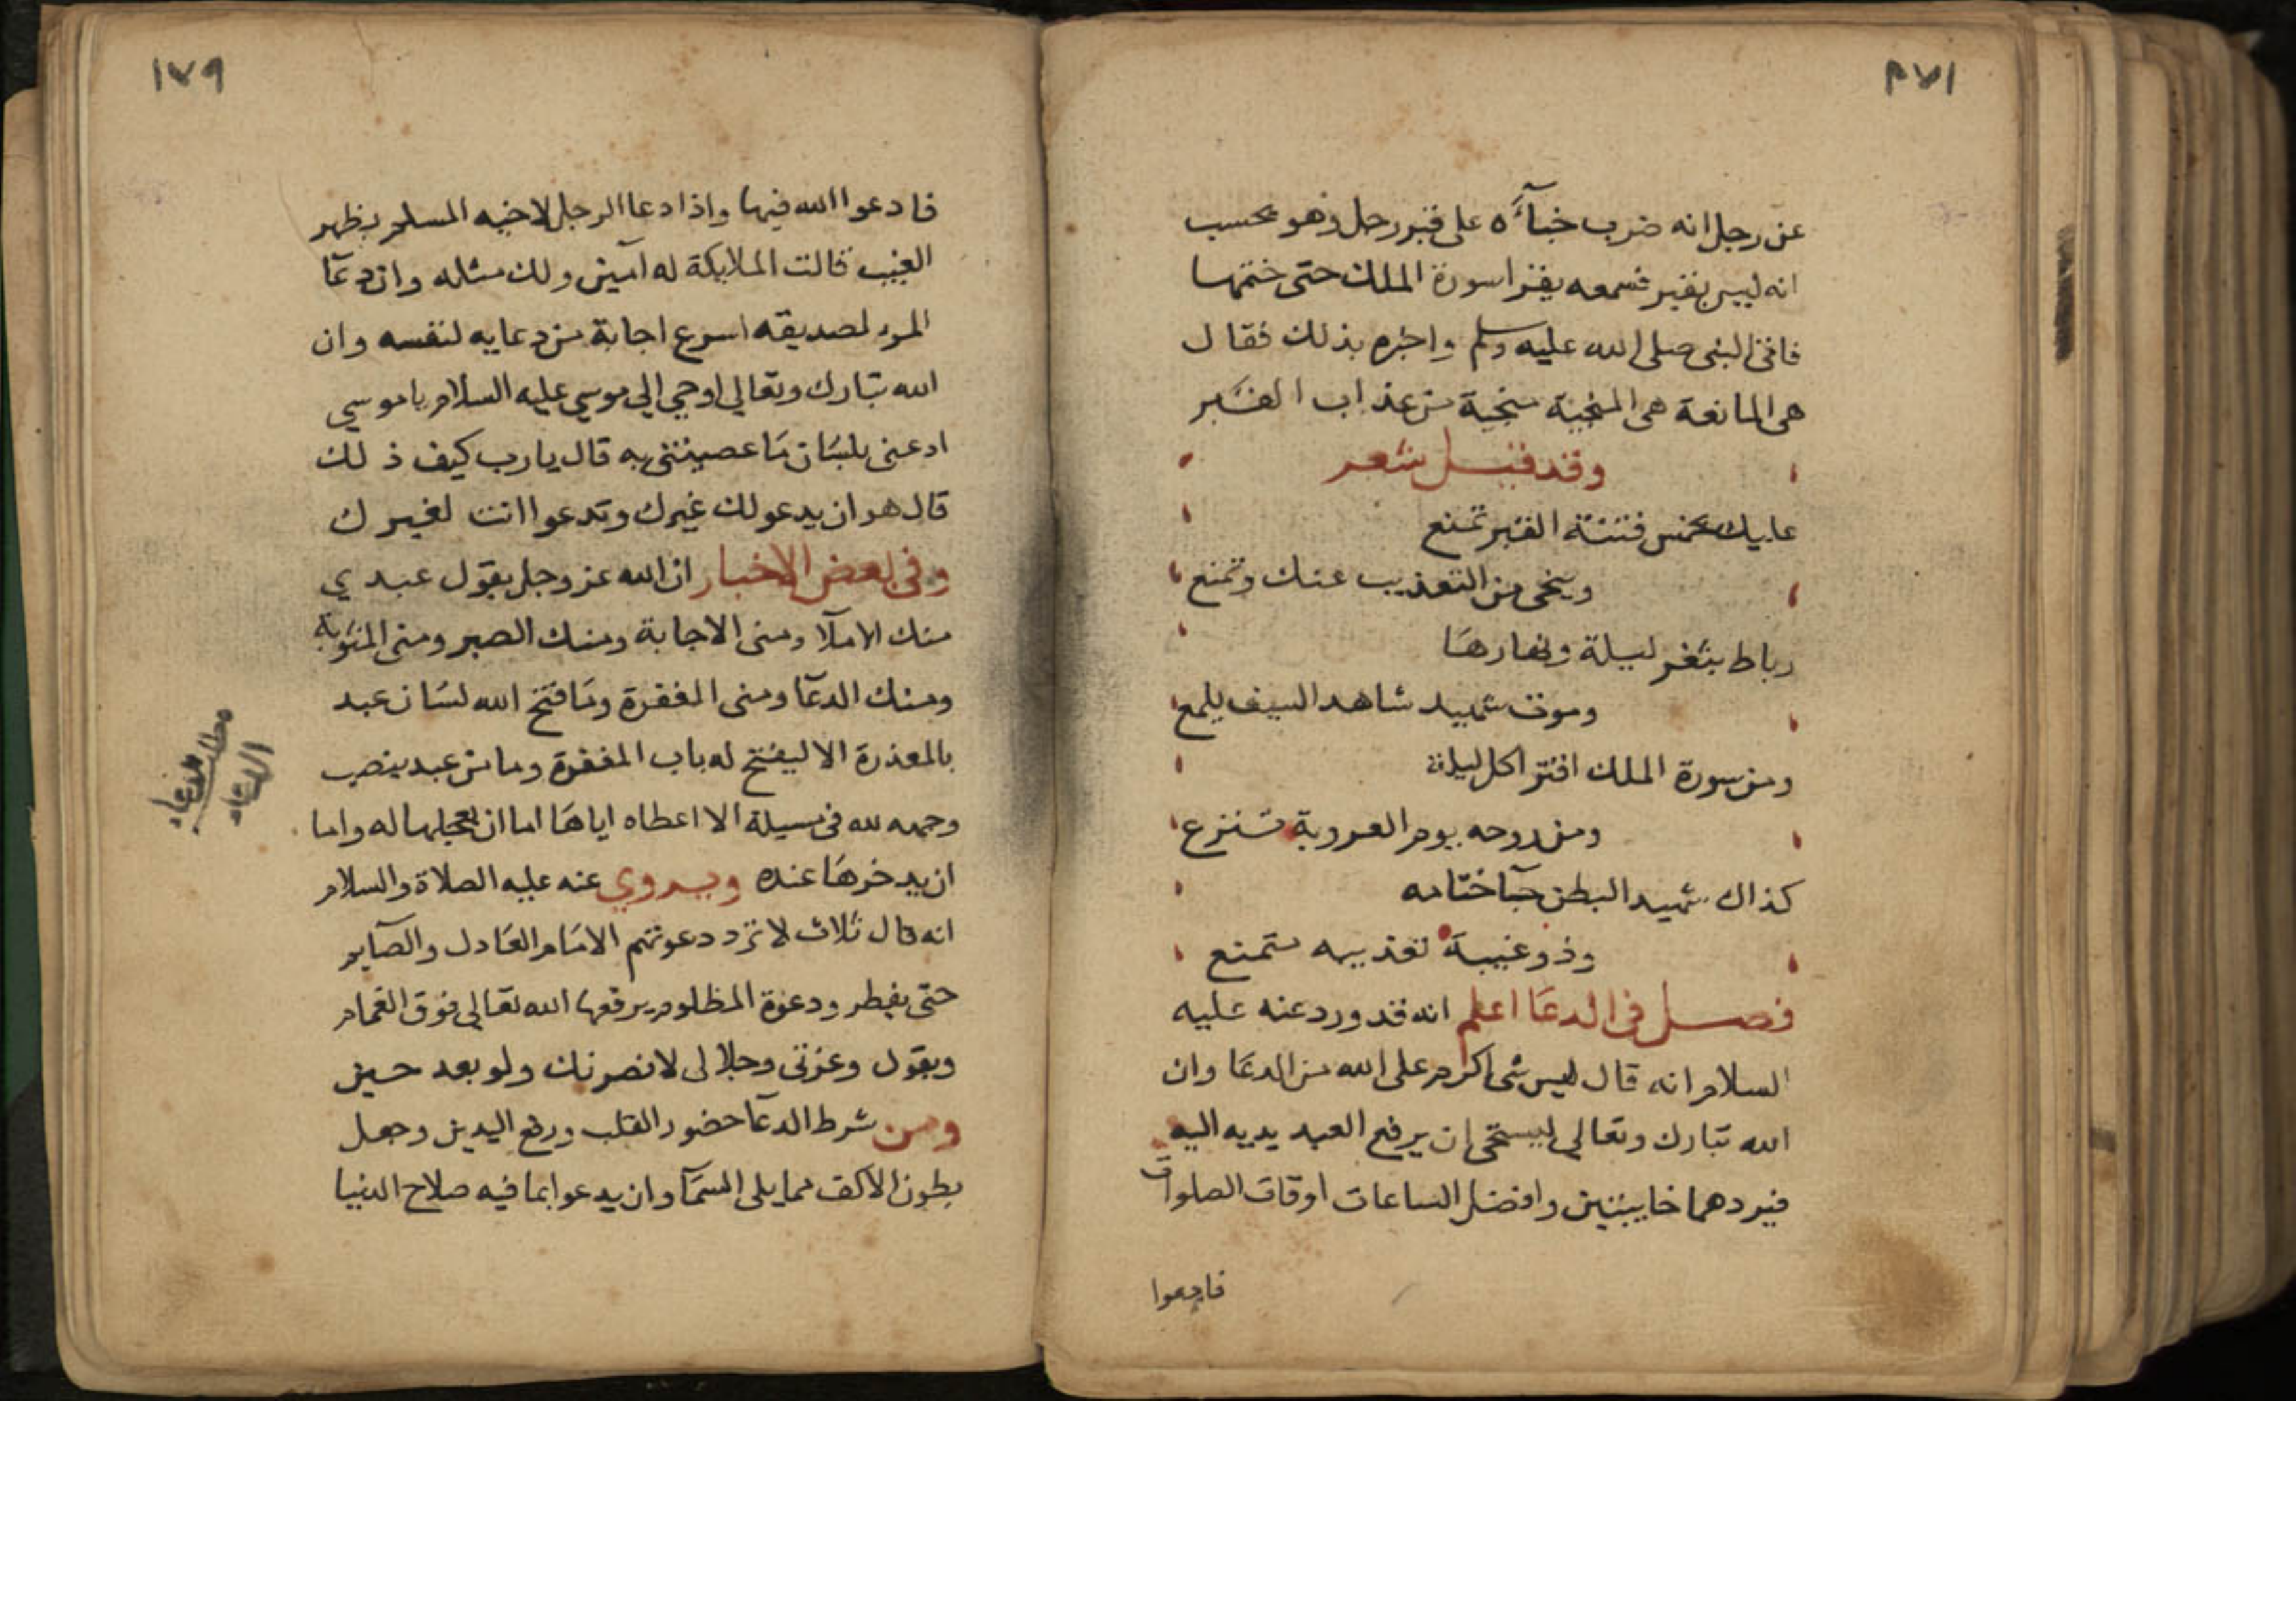 ١٧٨
عن رجل انه ضرب خبآءه على قبر رجل وهو يحسب
انه ليس بقبر فسمعه يقرا سورة الملك حتى ختمها
فاتى النبى صلى الله عليه وسلم واخبره بذلك فقال
هى المانعة هى المنجية منجية من عذاب القبر
وقد قيل شعر
عليك بخمس فتنة القبر تمنع
وينجى من التعذيب عنك وتمنع
رباط بثغر ليلة ونهارها
وموت شهيد شاهد السيف يلمع
ومن سورة الملك اقترا كل ليلة
ومن روحه يوم العروبة تنزع
كذاك شهيد البطن جآ ختامه
وذو غيبة تعذيبه ستمنع
فصل فى الدعا اعلم انه قد ورد عنه عليه
السلام انه قال ليس شى اكرم على الله من الدعا وان
الله تبارك وتعالى ليستحى ان يرفع العبد يديه اليه
فيردهما خايبتين وافضل الساعات اوقات الصلوات
فادعوا
١٧٩
فادعوا الله فيها واذا دعا الرجل لاخيه المسلم بظهر
الغيب قالت الملايكة له آمين ولك مثله وان دعآ
المرء لصديقه اسرع اجابة من دعايه لنفسه وان
الله تبارك وتعالى اوحى الى موسى عليه السلام يا موسى
ادعنى بلسان ما عصيتنى به قال يارب كيف ذلك
قال هو ان يدعو لك غيرك وتدعوا انت لغيرك
وفى بعض الاخبار ان الله عز وجل يقول عبدي
منك الاملآ ومنى الاجابة ومنك الصبر ومنى المثوبة
ومنك الدعآ ومنى المغفرة وما فتح الله لسان عبد
بالمعذرة الا ليفتح له باب المغفرة وما من عبد ينصب
وجهه لله فى مسيلة الا اعطاه اياها اما ان يعجلها له واما
ان يدخرها عنده ويروي عنه عليه الصلاة والسلام
انه قال ثلاث لا ترد دعوتهم الامام العادل والصآيم
حتى يفطر ودعوة المظلوم يرفعها الله تعالى فوق الغمام
ويقول وعزتى وجلالى لانصرنك ولو بعد حين
ومن شرط الدعآ حضور القلب ورفع اليدين وجعل
بطون الاكف مما يلى السمآ وان يدعوا بما فيه صلاح الدنيا
مطلب
الدعاء